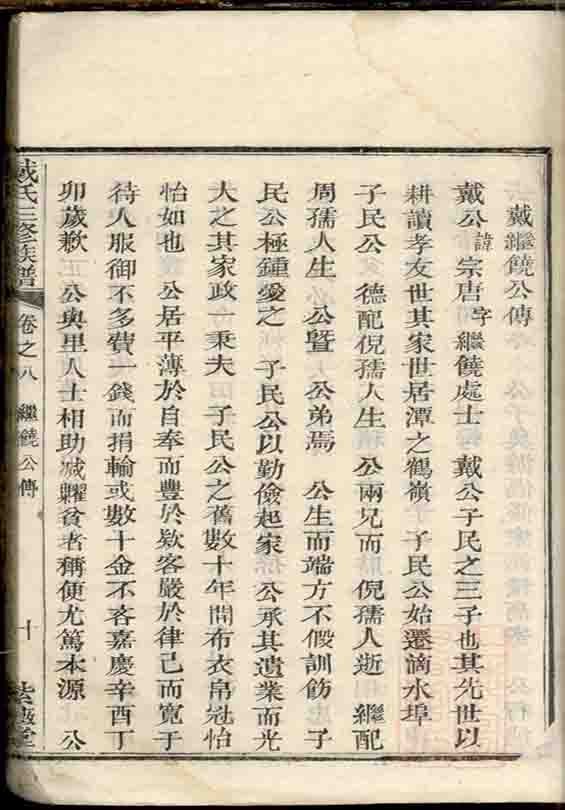 戴繼饒公傳
戴公諱宗唐字繼饒處士 戴公子民之三子也其先世以
耕讀孝友世其家世居潭之鶴嶺 子民公始遷滴水埠
子民公 德配倪孺人生 公兩兄而 倪孺人逝 繼配
周孺人生 公暨 公弟焉 公生而端方不假訓飭 子
民公極鍾愛之 子民公以勤儉起家 公承其遺業而光
大之其家政一秉夫 子民公之舊數十年間布衣帛冠怡
怡如也 公居平薄於自奉而豐於欵客嚴於律己而寬于
待人服御不多費一錢而捐輸或數十金不吝嘉慶辛酉丁
卯歲歉 公與里人士相助減糶貧者稱便尤篤本源 公
戴氏三修族譜 卷之八 繼饒公傳 十